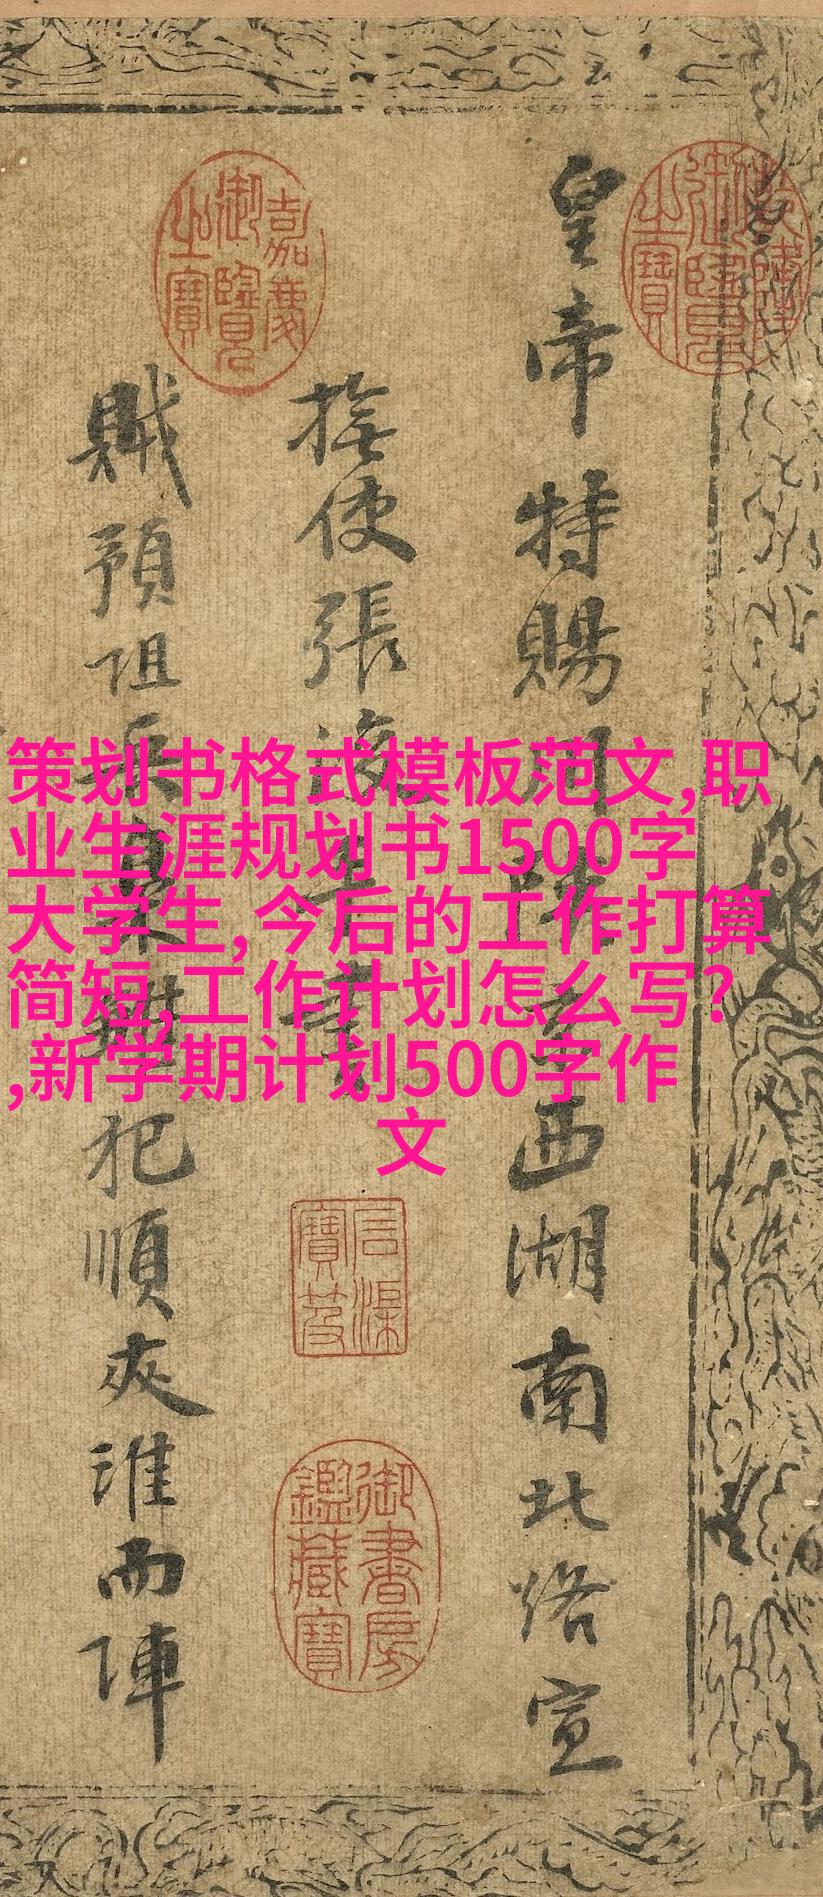 策划书格式模板范文,职
业生涯规划书1500字
大学生,今后的工作打算
简短,工作计划怎么写?
,新学期计划500字作
文
皇帝特賜
西湖南北烙宣
撫使張浚
賊預阻兵東
犯順夾淮而陣
嘉慶御覽之寶
御書房鑑藏寶